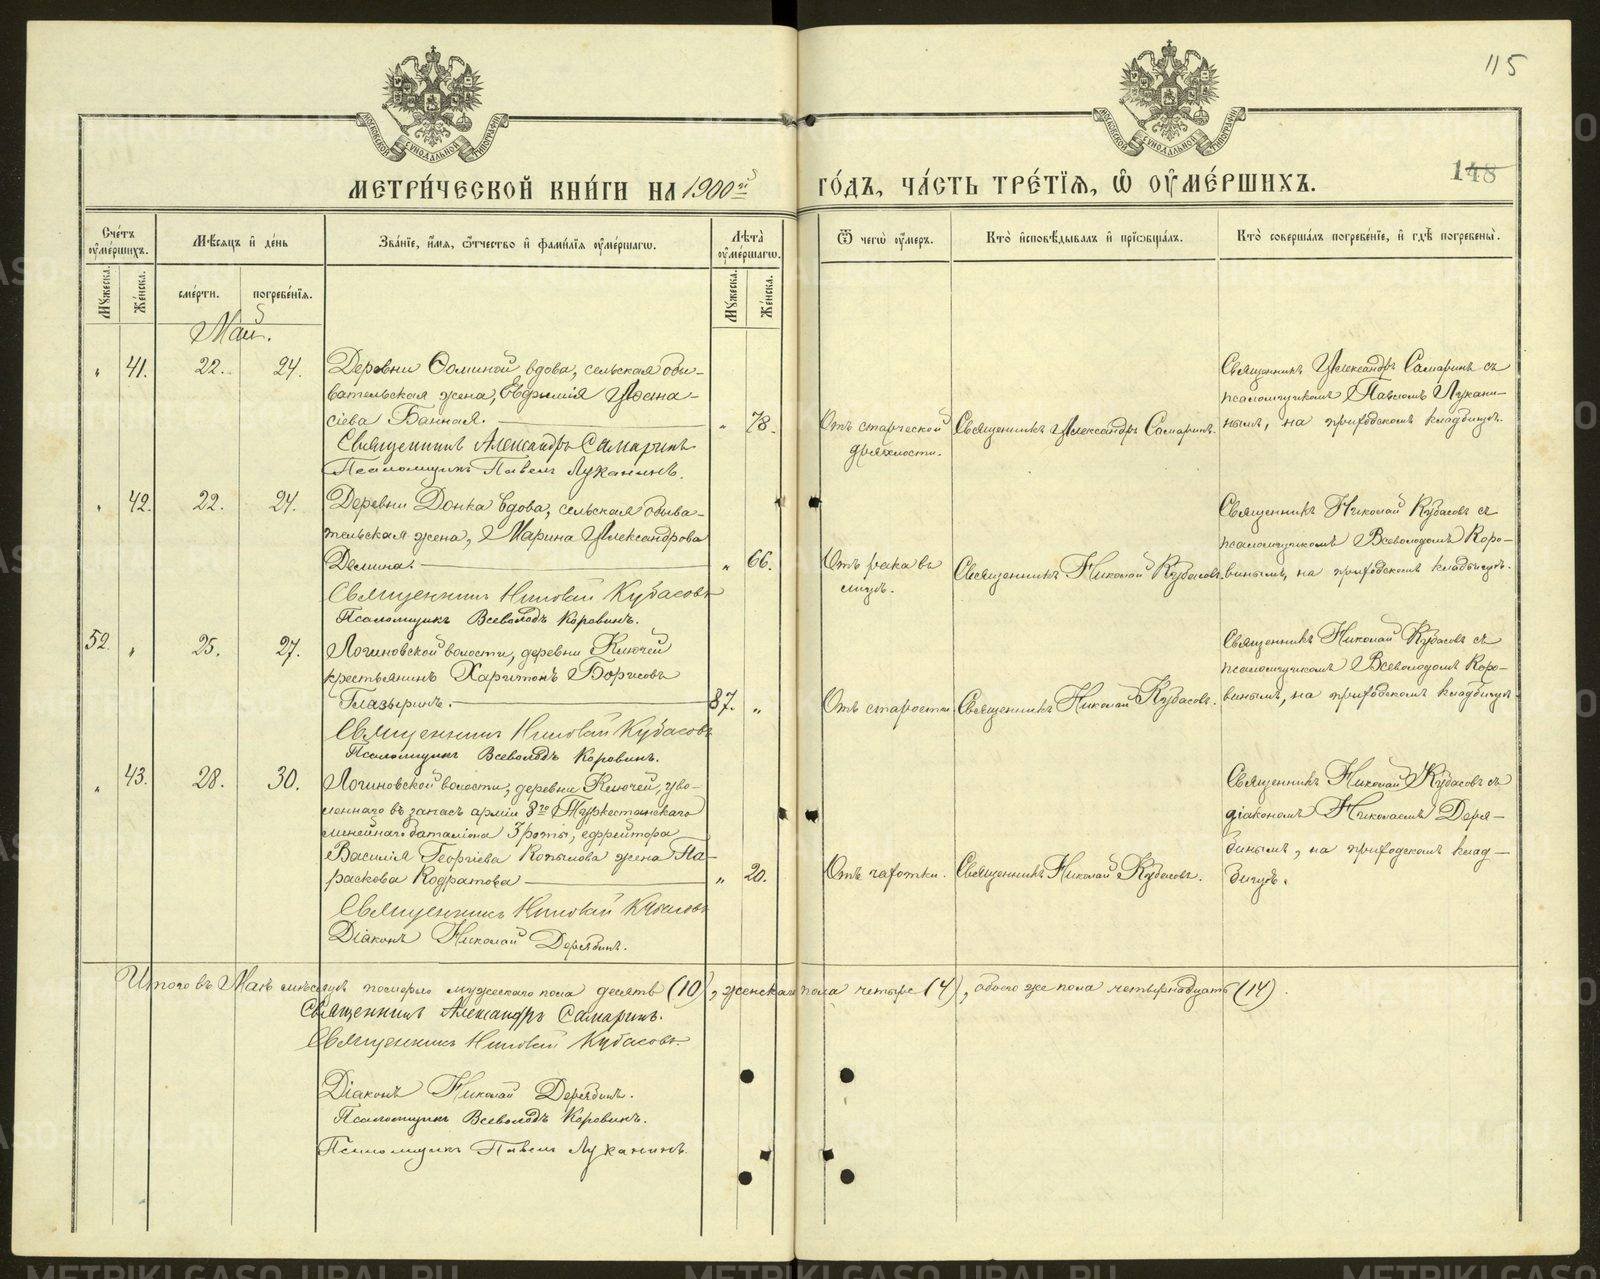 115
МОСКОВСКОЙ СѴНОДАЛЬНОЙ ТИПОГРАФІИ
МОСКОВСКОЙ СѴНОДАЛЬНОЙ ТИПОГРАФІИ
148
МЕТРИ́ЧЕСКОЙ КНИ́ГИ НА 1900й ГО́ДЪ, ЧА́СТЬ ТРЕ́ТІѦ, Ѡ҆ ОУ҆МЕ́РШИХЪ.
Сче́тъ оу҆ме́ршихъ.
Мѣ́сѧцъ и҆ де́нь
Зва́нїе, и҆́мѧ, ѻ҆́тчество и҆ фами́лїѧ оу҆ме́ршагѡ.
Лѣта̀ оу҆ме́ршагѡ.
Ѿ чегѡ̀ оу҆́меръ.
Кто̀ и҆сповѣ́дывалъ и҆ прїѡбща́лъ.
Кто̀ соверша́лъ погребе́нїе, и҆ гдѣ̀ погребены̀.
Мꙋ́жеска.
Же́нска.
сме́рти.
погребе́нїѧ.
Мꙋ́жеска.
Же́нска.
Май.
" 41. 22. 24. Деревни Ѳоминой вдова, сельская обы-
вательская жена, Евфимія Аѳана-
сіева Банная. " 78.
Священникъ Александръ Самаринъ
Псаломщикъ Павелъ Луканинъ.
Отъ старческой
дряхлости.
Священникъ Александръ Самаринъ.
Священникъ Александръ Самаринъ съ
псаломщикомъ Павломъ Лукани-
нымъ, на приходскомъ кладбищѣ.
" 42. 22. 24. Деревни Донка вдова, сельская обыва-
тельская жена, Марина Александрова
Демина. " 66.
Священникъ Николай Кубасовъ
Псаломщикъ Всеволодъ Коровинъ.
Отъ рака въ
Священникъ Николай Кубасовъ
Священникъ Николай Кубасовъ съ
псаломщикомъ Всеволодомъ Коро-
винымъ, на приходскомъ кладбищѣ.
52. " 25. 27. Логиновской волости, деревни Ключей
крестьянинъ Харитонъ Борисовъ
Глазыринъ. 87. "
Священникъ Николай Кубасовъ
Псаломщикъ Всеволодъ Коровинъ.
Отъ старости.
Священникъ Николай Кубасовъ.
Священникъ Николай Кубасовъ съ
псаломщикомъ Всеволодомъ Коро-
винымъ, на приходскомъ кладбищѣ
" 43. 28. 30. Логиновской волости, деревни Ключей, уво-
леннаго въ запасъ арміи 8го Туркестанскаго
линейнаго баталіона 3 роты, ефрейтора
Василія Георгіева Копылова жена Па-
раскова Кодратова " 20.
Священникъ Николай Кубасовъ
Діаконъ Николай Дерябинъ.
Отъ чахотки.
Священникъ Николай Кубасовъ.
Священникъ Николай Кубасовъ съ
діакономъ Николаемъ Деря-
бинымъ, на приходскомъ клад-
бищѣ.
Итого въ Маѣ мѣсяцѣ померло мужескаго пола десять (10), женскаго пола четыре (4), обоего же пола четырнадцать (14).
Священникъ Александръ Самаринъ.
Священникъ Николай Кубасовъ.
Діаконъ Николай Дерябинъ.
Псаломщикъ Всеволодъ Коровинъ.
Псаломщикъ Павелъ Луканинъ.
METRIKI.GASO-URAL.RU